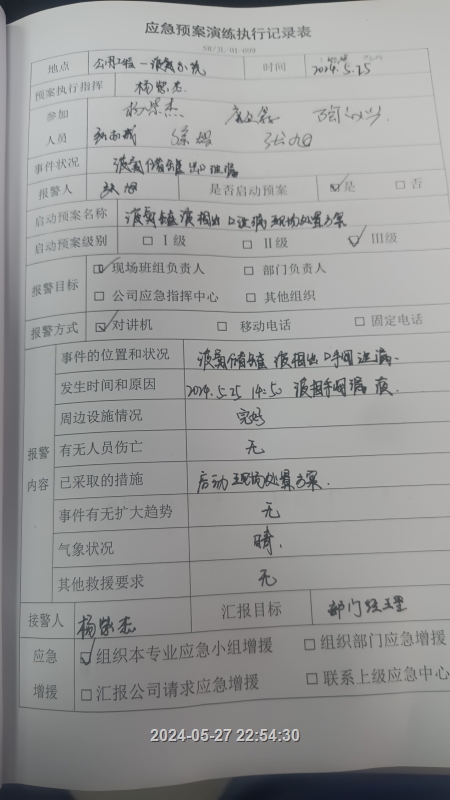 应急预案演练执行记录表
地点 公用工程一液氨系统 时间 2024.5.25
预案执行指挥 杨荣杰
参加
人员
事件状况 液氨储罐出口泄漏
报警人 是否启动预案 ☑是 □否
启动预案名称 液氨储罐液相出口泄漏现场处置方案
启动预案级别 □Ⅰ级 □Ⅱ级 ☑Ⅲ级
报警目标 ☑现场班组负责人 □部门负责人
□公司应急指挥中心 □其他组织
报警方式 ☑对讲机 □移动电话 □固定电话
报警内容
事件的位置和状况 液氨储罐液相出口手阀泄漏.
发生时间和原因 2024.5.25 14:50 液相手阀漏液.
周边设施情况 完好
有无人员伤亡 无
已采取的措施 启动现场处置方案.
事件有无扩大趋势 无
气象状况 晴.
其他救援要求 无
接警人 杨荣杰 汇报目标 部门经理
应急增援
☑组织本专业应急小组增援 □组织部门应急增援
□汇报公司请求应急增援 □联系上级应急中心
2024-05-27 22:54:30